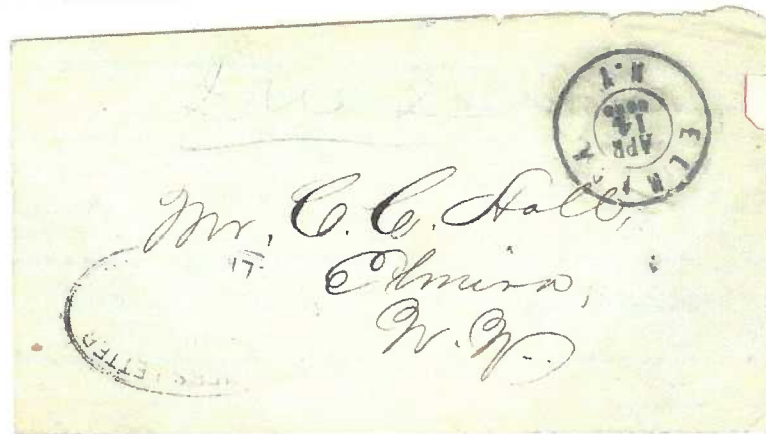 ELMIRA
N.Y.
APR
14
Mr. C. C. Hall,
17
Elmira,
N. Y.
LETTER